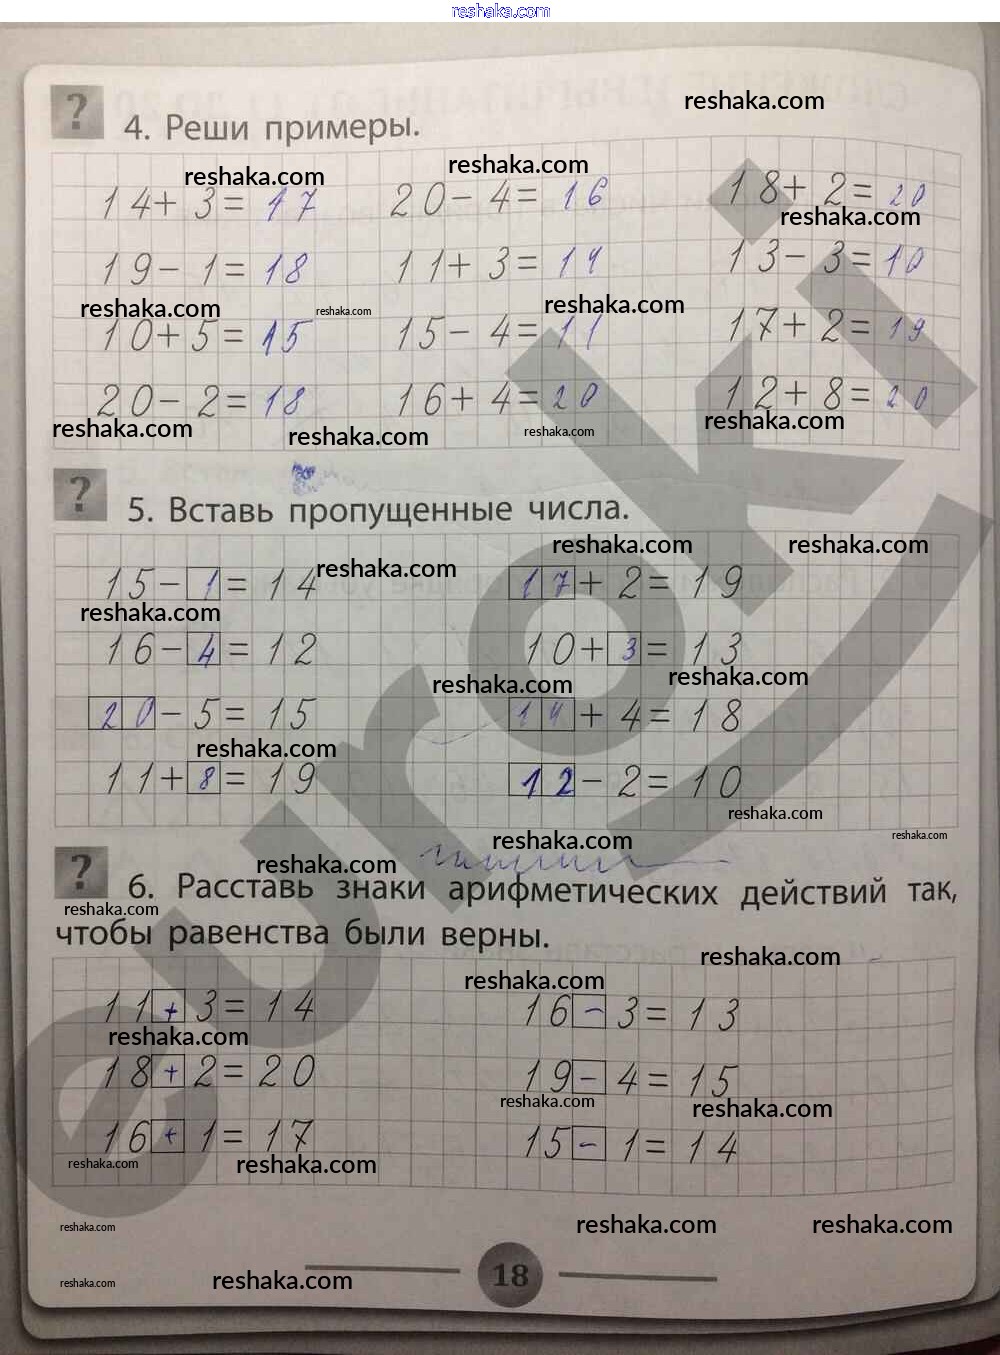 reshaka.com
reshaka.com
? 4. Реши примеры.
reshaka.com reshaka.com
14+ 3= 17 20- 4= 16 18+ 2= 20
reshaka.com
19- 1= 18 11+ 3= 14 13- 3= 10
reshaka.com reshaka.com reshaka.com
10+ 5= 15 15- 4= 11 17+ 2= 19
20- 2= 18 16+ 4= 20 12+ 8= 20
reshaka.com reshaka.com reshaka.com reshaka.com
? 5. Вставь пропущенные числа.
reshaka.com reshaka.com
15- 1= 14 reshaka.com 17+ 2= 19
reshaka.com
16- 4= 12 10+ 3= 13
reshaka.com reshaka.com
20- 5= 15 14+ 4= 18
reshaka.com
11+ 8= 19 12- 2= 10
reshaka.com reshaka.com
reshaka.com
reshaka.com
? 6. Расставь знаки арифметических действий так,
reshaka.com
чтобы равенства были верны.
reshaka.com
reshaka.com
11+ 3= 14 16- 3= 13
reshaka.com
18+ 2= 20 19- 4= 15
reshaka.com reshaka.com
16+ 1= 17 15- 1= 14
reshaka.com reshaka.com
reshaka.com reshaka.com reshaka.com
reshaka.com reshaka.com 18
euroki